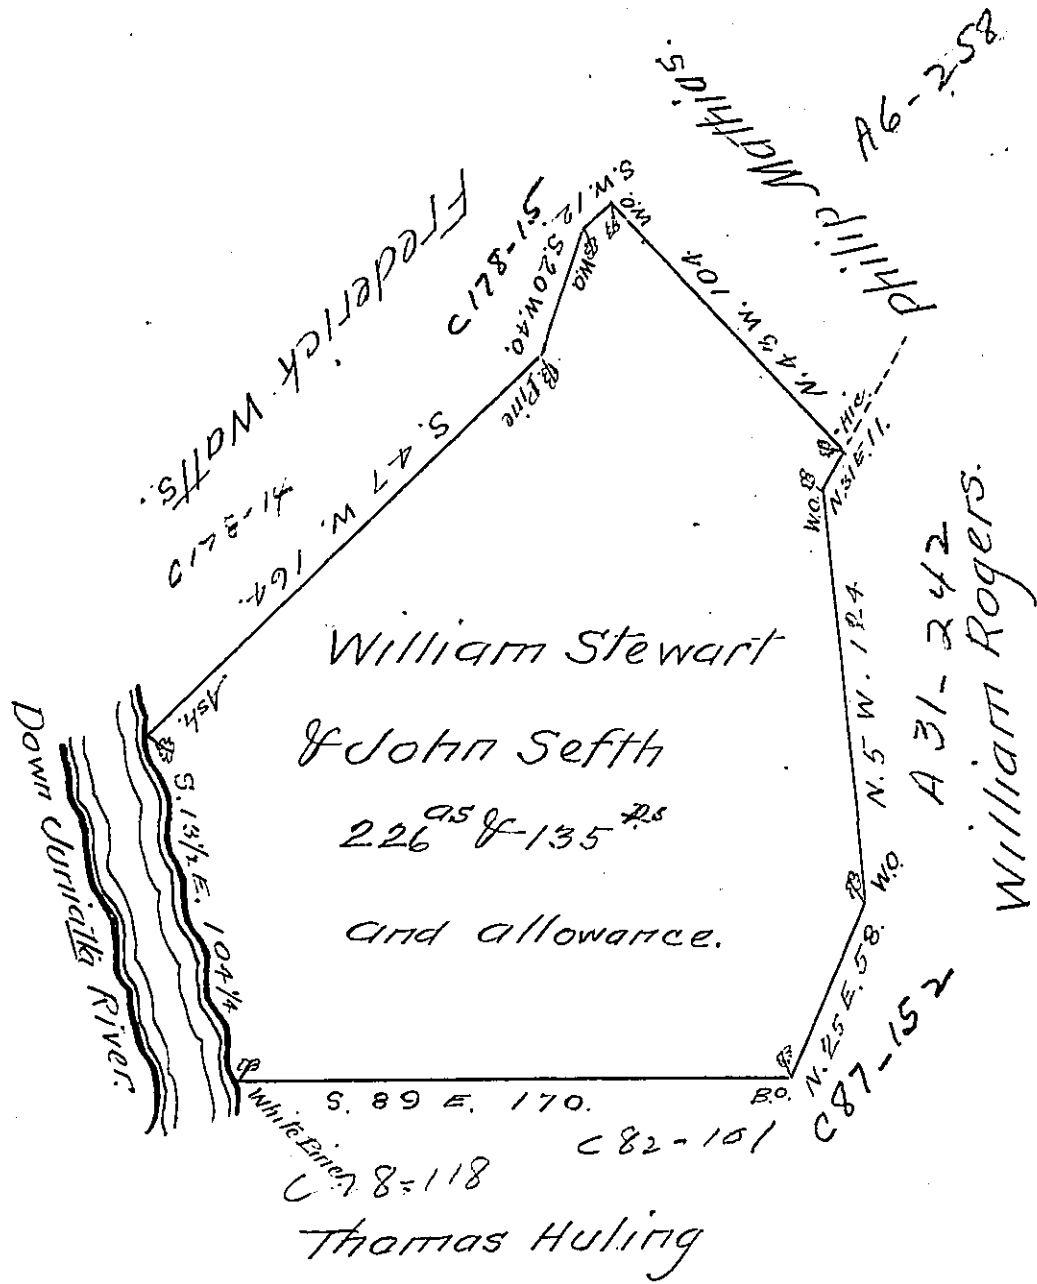 Philip Mathias.
A6-258
Frederick Watts.
S.W. 12.
W.O.
W.O.
S. 20 W. 40.
N. 43 W. 104
Pine
S. 47 W. 164.
Hic.
N. 31 E. 11.
W.O.
N. 5 W. 124
A 31-242
William Rogers.
William Stewart
& John Sefth
226 as & 135 ps
and allowance.
Ash.
S. 13 1/2 E. 104 1/4
Down Juniata River.
W.O.
N. 25 E. 58.
C87-152
B.O.
S. 89 E. 170.
White Pine
C 82-161
C 78=118
Thomas Huling